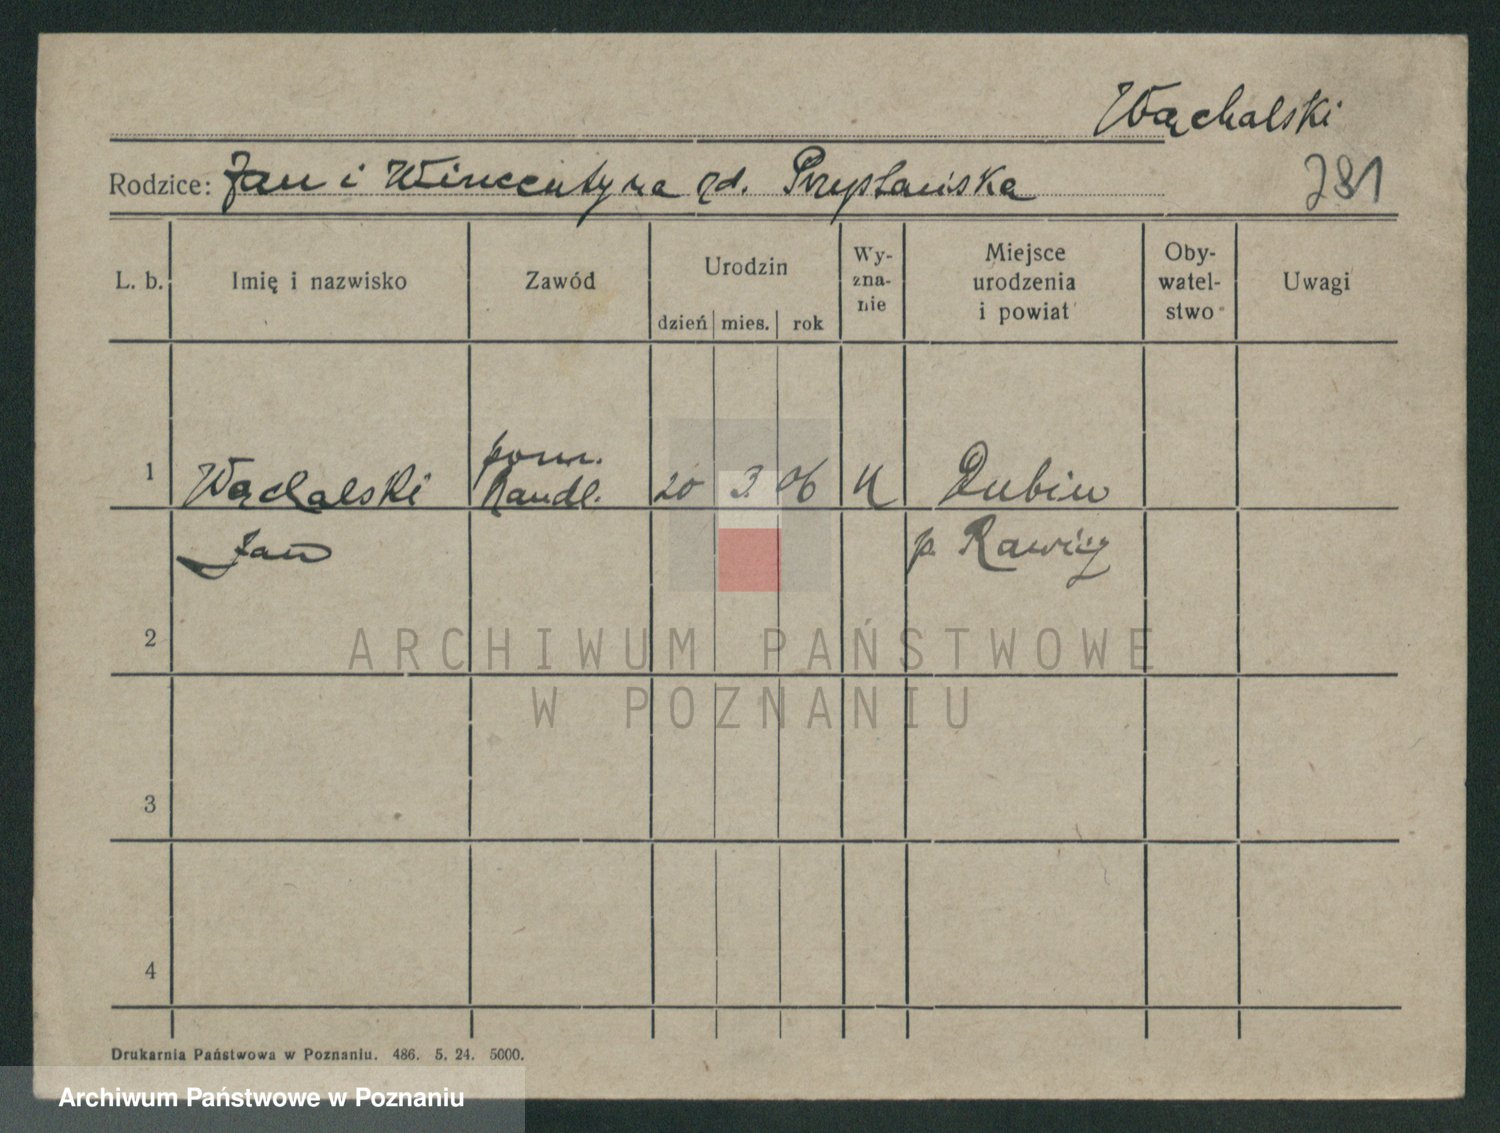 Wąchalski
Rodzice: Jan i Wincentyna zd. Przystańska
781
L. b.
Imię i nazwisko
Zawód
Urodzin
dzień mies. rok
Wy-
zna-
nie
Miejsce
urodzenia
i powiat
Oby-
watel-
stwo
Uwagi
pom.
1 Wąchalski handl. 20 3. 06 K Dubin
Jan p. Rawicz
2
ARCHIWUM PAŃSTWOWE
W POZNANIU
3
4
Drukarnia Państwowa w Poznaniu. 486. 5. 24. 5000.
Archiwum Państwowe w Poznaniu